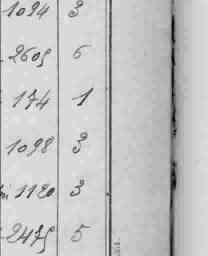 1094 3
2605 6
174 1
1098 3
1120 3
2475 5